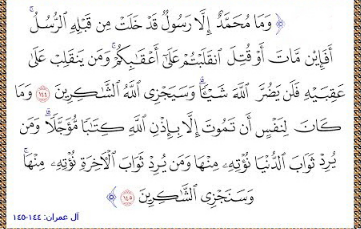 ﴿ وَمَا مُحَمَّدٌ إِلَّا رَسُولٌ قَدْ خَلَتْ مِن قَبْلِهِ ٱلرُّسُلُ ۚ
أَفَإِيْن مَّاتَ أَوْ قُتِلَ ٱنقَلَبْتُمْ عَلَىٰٓ أَعْقَٰبِكُمْ ۚ وَمَن يَنقَلِبْ عَلَىٰ
عَقِبَيْهِ فَلَن يَضُرَّ ٱللَّهَ شَيْـًٔا ۗ وَسَيَجْزِى ٱللَّهُ ٱلشَّٰكِرِينَ ١٤٤ وَمَا
كَانَ لِنَفْسٍ أَن تَمُوتَ إِلَّا بِإِذْنِ ٱللَّهِ كِتَٰبًا مُّؤَجَّلًا ۗ وَمَن
يُرِدْ ثَوَابَ ٱلدُّنْيَا نُؤْتِهِۦ مِنْهَا وَمَن يُرِدْ ثَوَابَ ٱلْـَٔاخِرَةِ نُؤْتِهِۦ مِنْهَا ۚ
وَسَنَجْزِى ٱلشَّٰكِرِينَ ١٤٥ ﴾
آل عمران: ١٤٤-١٤٥